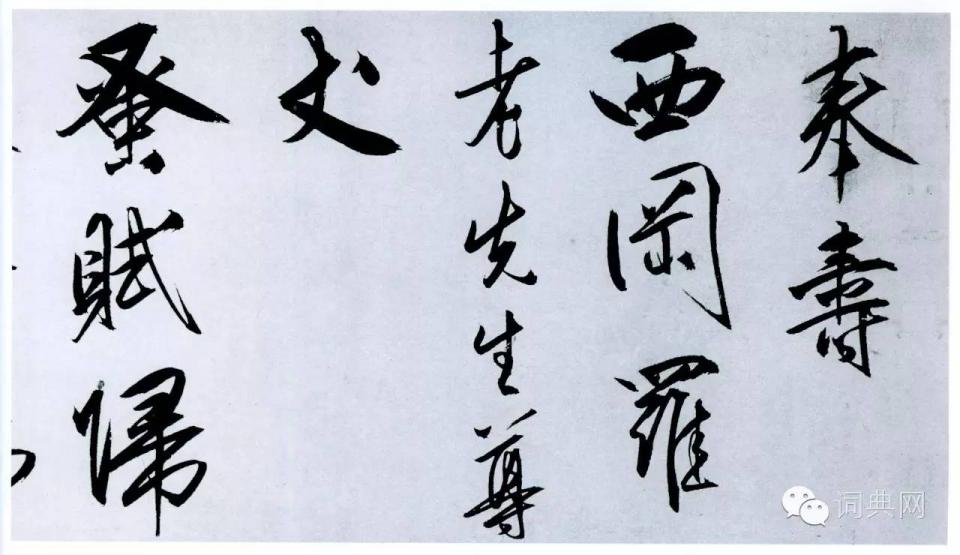 奉壽
西岡羅
老先生尊
丈
蚤賦歸
词典网